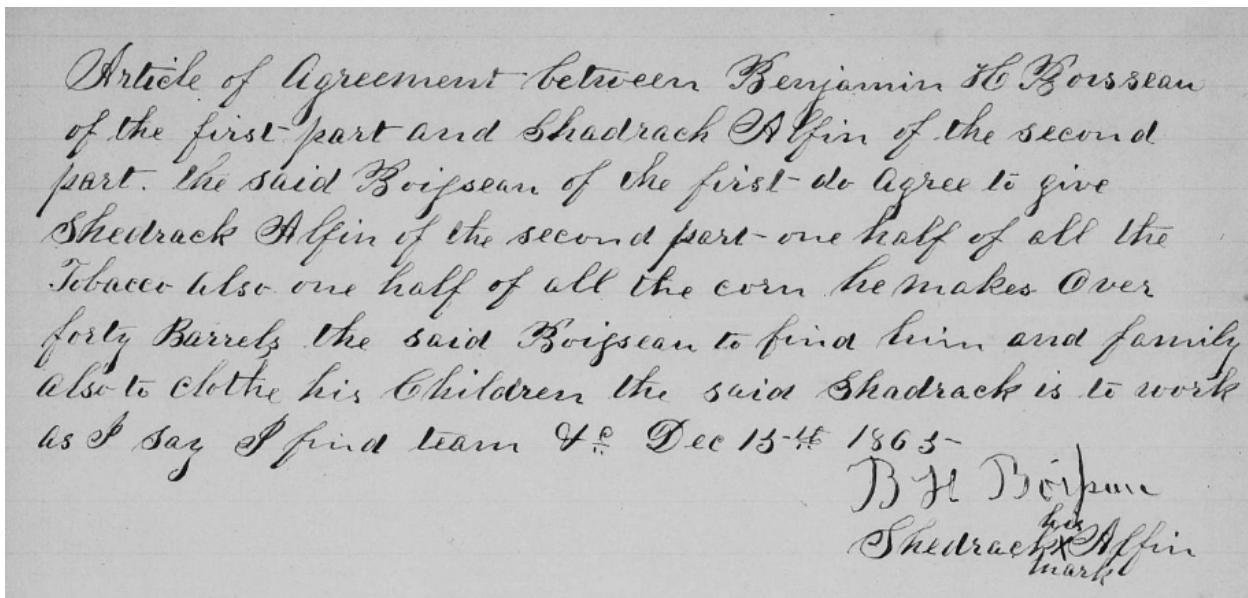 Article of Agreement between Benjamin H Boisseau
of the first part and Shadrach Alfin of the second
part. the said Boisseau of the first do agree to give
Shedrack Alfin of the second part one half of all the
Tobacco also one half of all the corn he makes Over
forty Barrels the said Boisseau to find him and family
also to clothe his Children the said Shadrack is to work
as I say I find team &c Dec 15th 1865
B H Boisseau
his
Shedrack X Alfin
mark